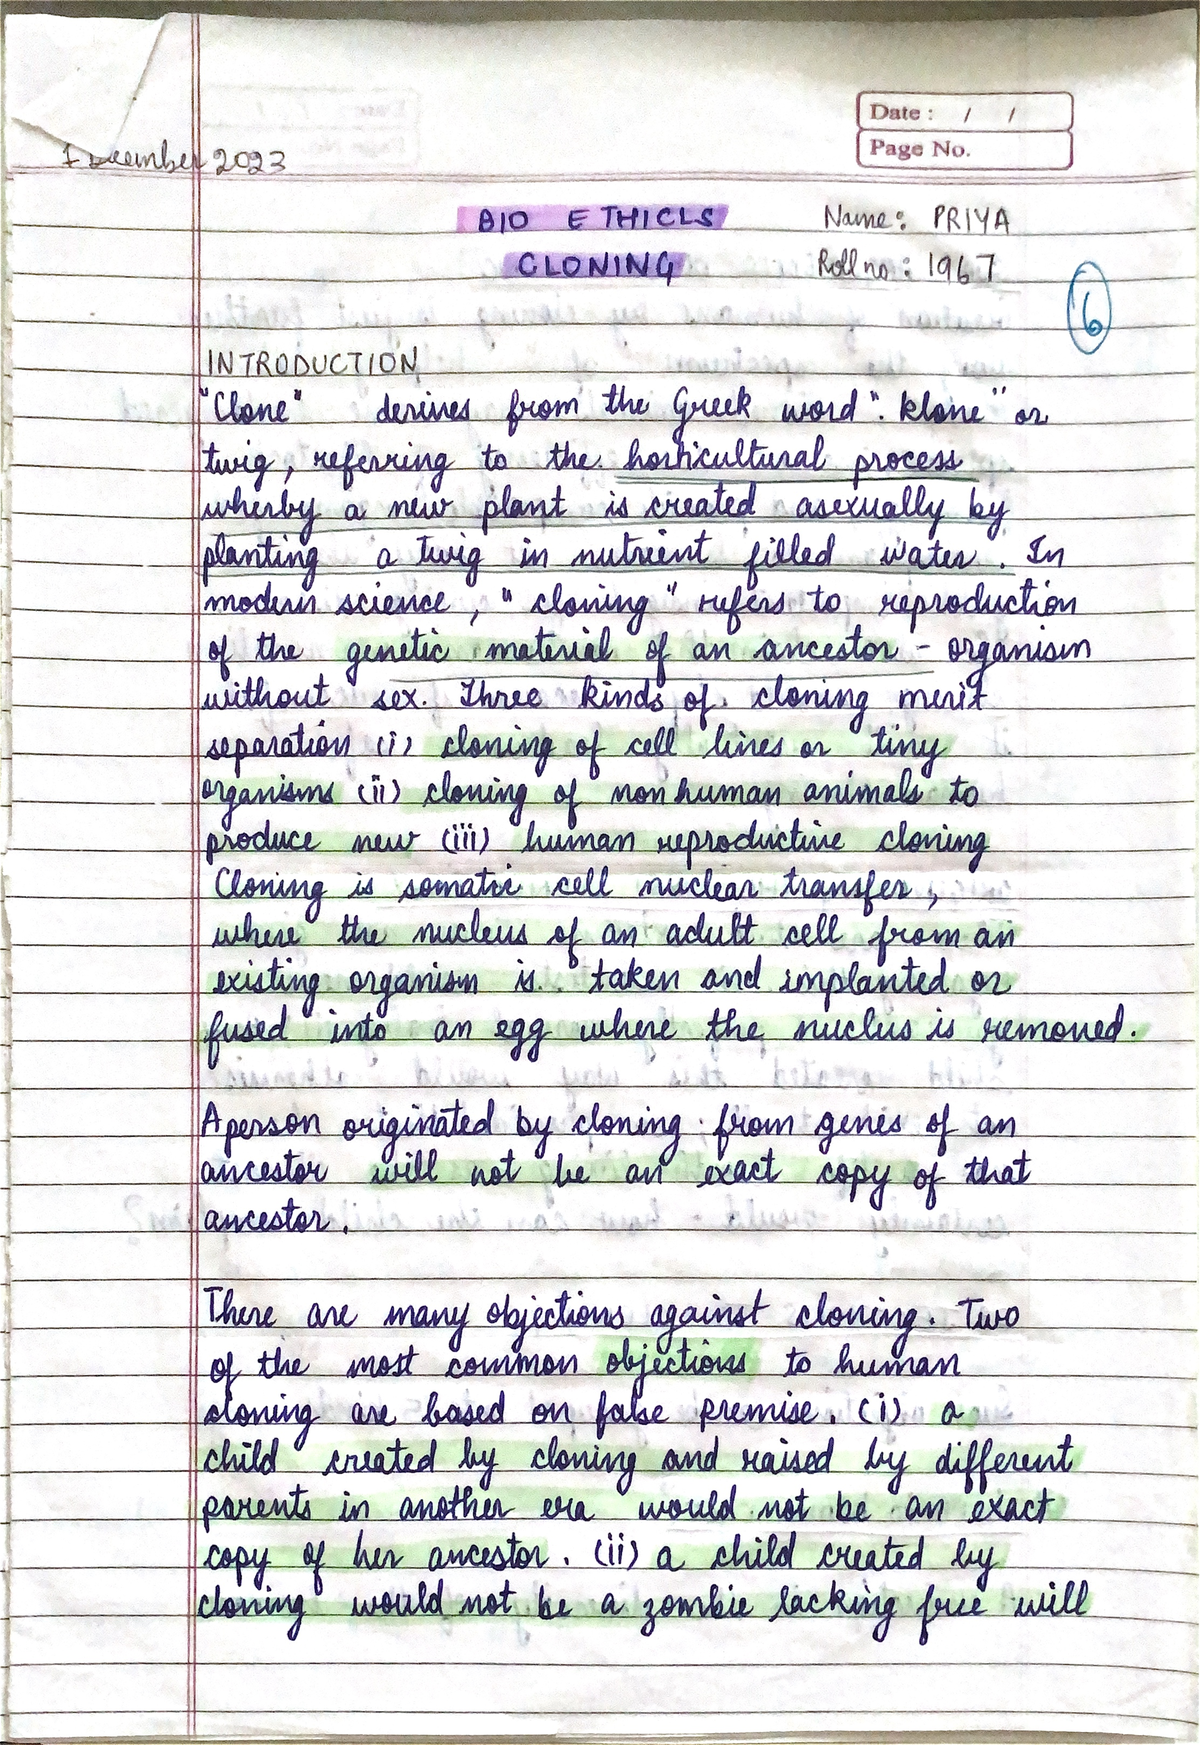 Date : / /
Page No.
1 December 2023
BIO ETHICLS
Name: PRIYA
CLONING
Roll no : 1967
6
INTRODUCTION
"Clone" derives from the Greek word ". klone" or
twig, referring to the. horticultural process
wherby a new plant is created asexually by
planting a twig in nutrient filled water. In
modern science, " cloning " refers to reproduction
of the genetic material of an ancestor - organism
without sex. Three kinds of. cloning merit
separation (i) cloning of cell lines or tiny
organisms (ii) cloning of non human animals to
produce new (iii) human reproductive cloning
Cloning is somatic cell nuclear transfer,
where the nucleus of an adult cell from an
existing organism is. taken and implanted or
fused into an egg where the nuclus is removed.
A person originated by cloning from genes of an
ancestor will not be an exact copy of that
ancestor.
There are many objections against cloning. Two
of the most common objections to human
cloning are based on false premise. (i) a
child created by cloning and raised by different
parents in another era would not be an exact
copy of her ancestor. (ii) a child created by
cloning would not be a zombie lacking free will